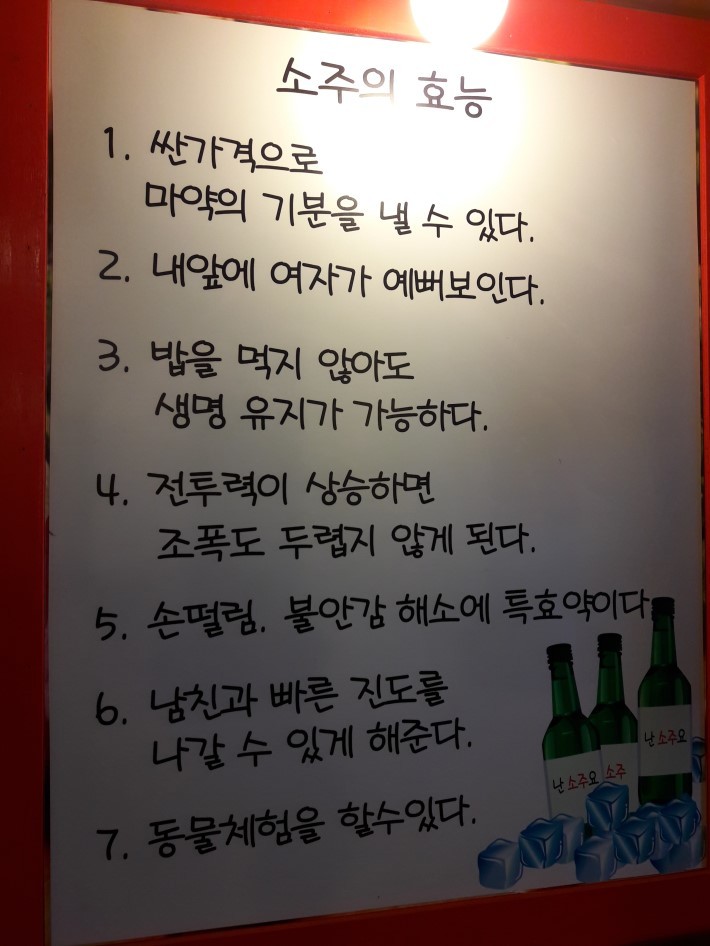 소주의 효능
1. 싼가격으로
마약의 기분을 낼 수 있다.
2. 내앞에 여자가 예뻐보인다.
3. 밥을 먹지 않아도
생명 유지가 가능하다.
4. 전투력이 상승하면
조폭도 두렵지 않게 된다.
5. 손떨림. 불안감 해소에 특효약이다
6. 남친과 빠른 진도를
나갈 수 있게 해준다.
7. 동물체험을 할수있다.
난 소주요
소주
난 소주요